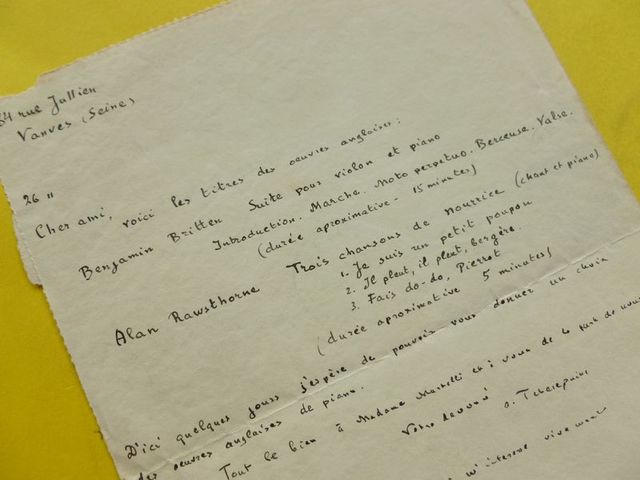 64 rue Jullien
Vanves (Seine)
26 "
Cher ami, voici les titres des oeuvres anglaises :
Benjamin Britten Suite pour violon et piano
Introduction. Marche. Moto perpetuo. Berceuse. Valse.
(durée aproximative - 15 minutes)
Alan Rawsthorne Trois chansons de nourrice (chant et piano)
1. Je suis un petit poupon
2. Il pleut, il pleut, bergère.
3. Fais do-do, Pierrot
(durée aproximative 5 minutes)
D'ici quelques jours j'espère de pouvoir vous donner un choix
des oeuvres anglaises de piano.
Tout le bien à Madame et à vous de la part de
Votre dévoué
A. Tcherepnine
m'interesse vivement